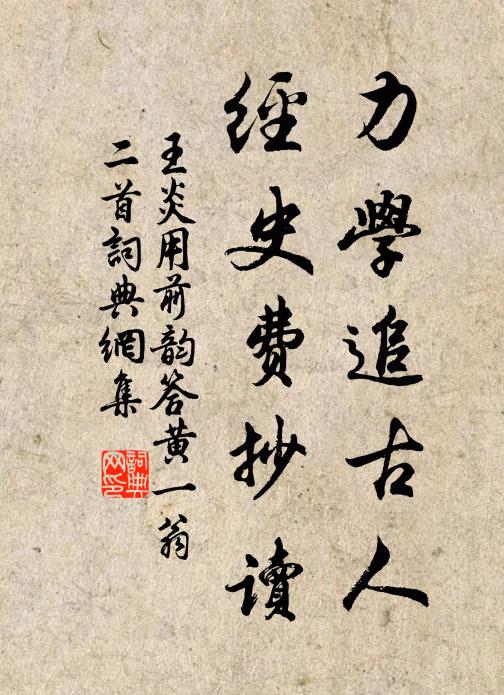 力學追古人
經史費抄讀
王炎用前韵答黄一翁
二首詞典網集
詞典
网印